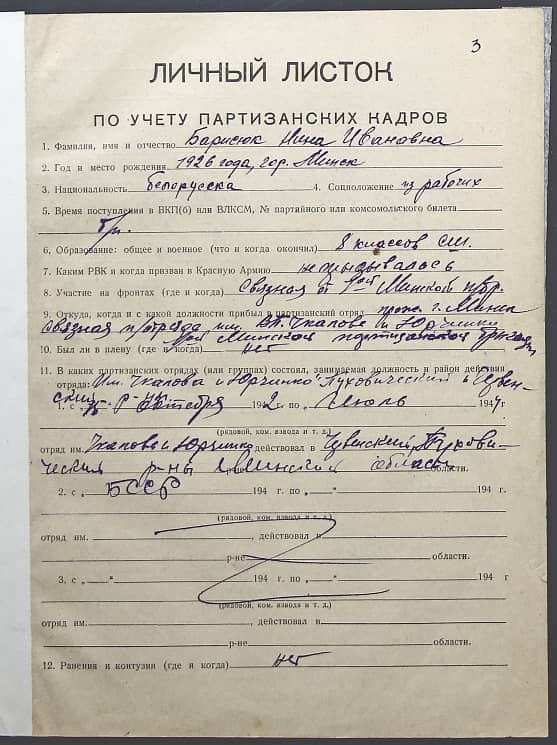 3
ЛИЧНЫЙ ЛИСТОК
ПО УЧЕТУ ПАРТИЗАНСКИХ КАДРОВ
1. Фамилия, имя и отчество Барисюк Нина Ивановна
2. Год и место рождения 1926 года, гор. Минск
3. Национальность белорусска 4. Соцположение из рабочих
5. Время поступления в ВКП(б) или ВЛКСМ, № партийного или комсомольского билета
б/п.
6. Образование: общее и военное (что и когда окончил) 8 классов СШ.
7. Каким РВК и когда призван в Красную Армию не призывалось
8. Участие на фронтах (где и когда) Связная от 1ой Минской п/бр.
9. Откуда, когда и с какой должности прибыл в партизанский отряд прож. г. Минск
Связная п/отряда им. Чкалова и Юрченко
1ой Минской партизанской бригады
10. Был ли в плену (где и когда) нет
11. В каких партизанских отрядах (или группах) состоял, занимаемая должность и район действия
отряда: Им. Чкалова и Юрченко Пуховический и Червен-
ский р-ны
1. с „ “ октября 194 2 г по „ “ Июль 194 4 г
(рядовой, ком. взвода и т. д.)
отряд им. Чкалова и Юрченко действовал в Червенский Пухови-
ческий р-ны Минской области области.
2. с „ БССР 194 г. по „ “ 194 г
(рядовой, ком. взвода и т. д.)
отряд им. , действовал в
р-не области.
3. с „ “ 194 г. по „ “ 194 г
(рядовой, ком. взвода и т. д.)
отряд им. , действовал в
р-не области.
12. Ранения и контузия (где и когда) нет